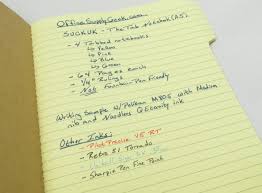 OfficeSupplyGeek.com
SUCKUK - The Tab Notebook (A5)
- 4 Tabbed notebooks
Yellow
Pink
Blue
Green
- 64 Pages each
- 1/4" Rulings
- Not Fountain-Pen Friendly
Writing Sample w/Pelikan M805 with Medium
nib and Noodlers QEternity ink
Other Inks:
- Pilot Precise V5 RT
- Retro 51 Tornado
- Sharpie Pen Fine Point